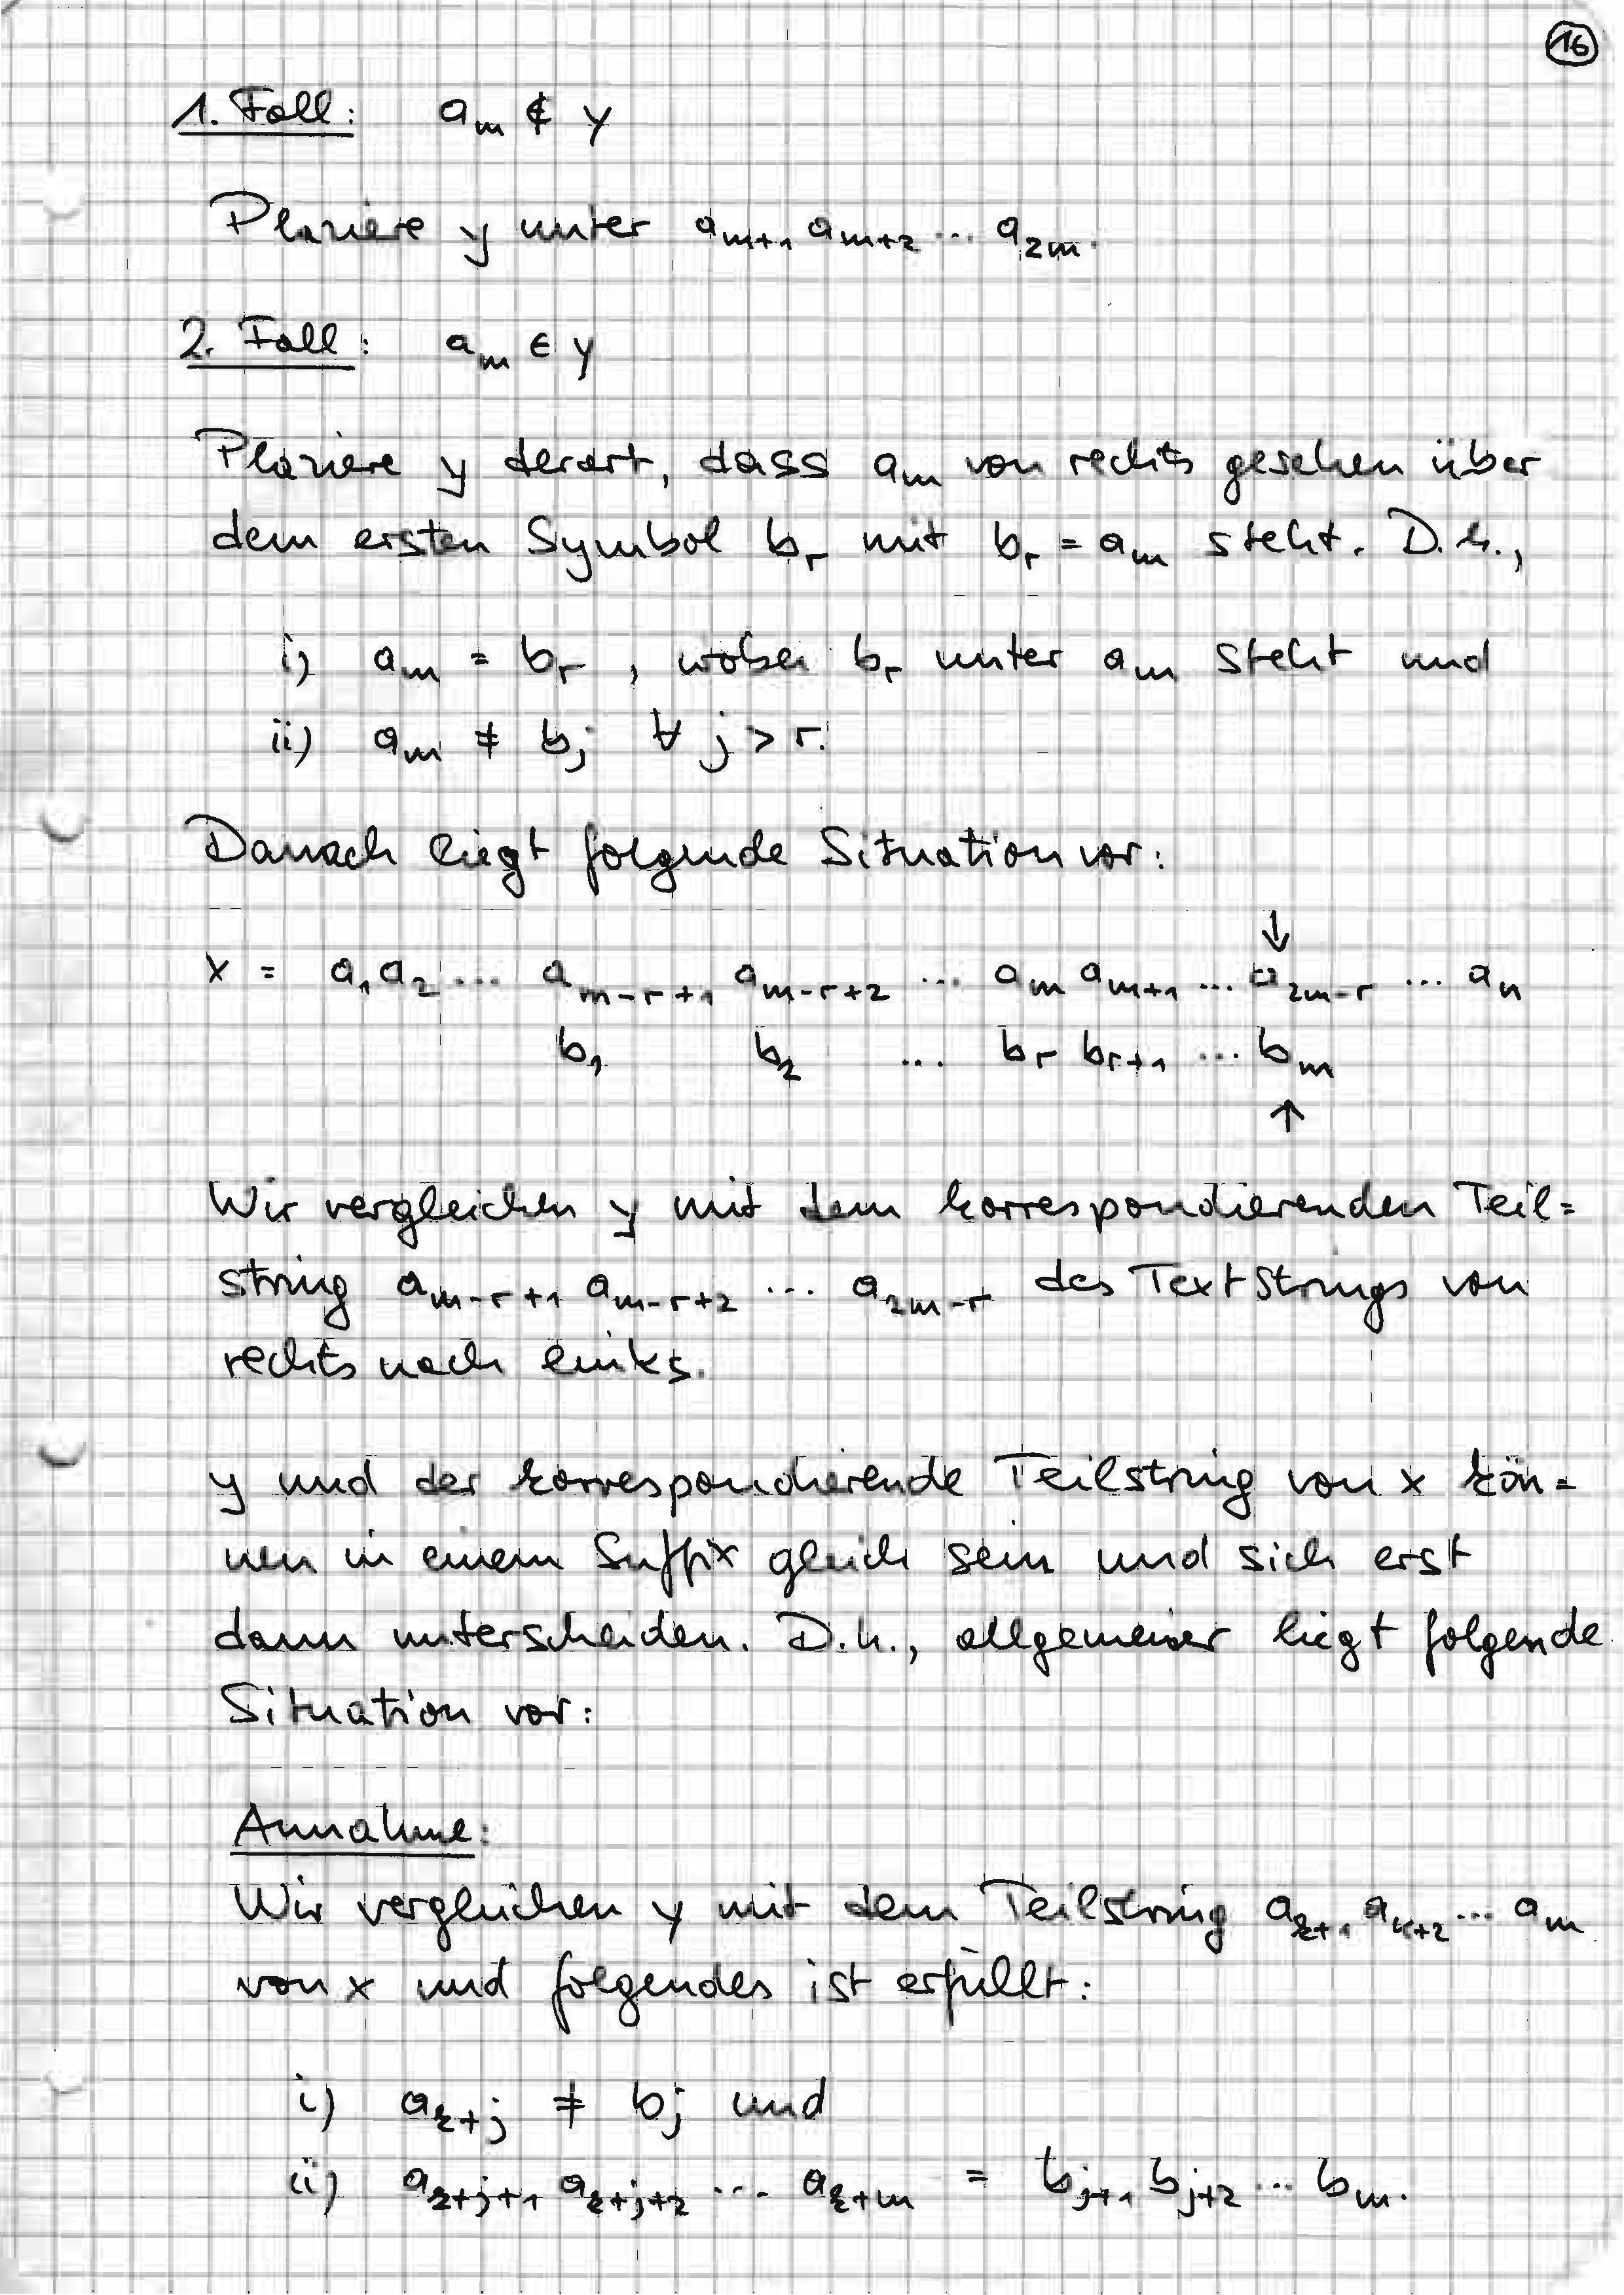 16
1. Fall: a_m ∉ y
Plaziere y unter a_{m+1} a_{m+2} ... a_{2m}.
2. Fall: a_m ∈ y
Plaziere y derart, dass a_m von rechts gesehen über
dem ersten Symbol b_r mit b_r = a_m steht. D.h.,
i) a_m = b_r, wobei b_r unter a_m steht und
ii) a_m ≠ b_j ∀ j > r.
Danach liegt folgende Situation vor:
↓
x = a_1 a_2 ... a_{m-r+1} a_{m-r+2} ... a_m a_{m+1} ... a_{2m-r} ... a_n
b_1 b_2 ... b_r b_{r+1} ... b_m
↑
Wir vergleichen y mit dem korrespondierenden Teil=
string a_{m-r+1} a_{m-r+2} ... a_{2m-r} des Textstrings von
rechts nach links.
y und der korrespondierende Teilstring von x kön=
nen in einem Suffix gleich sein und sich erst
dann unterscheiden. D.h., allgemeiner liegt folgende
Situation vor:
Annahme:
Wir vergleichen y mit dem Teilstring a_{k+1} a_{k+2} ... a_m
von x und folgendes ist erfüllt:
i) a_{k+j} ≠ b_j und
ii) a_{k+j+1} a_{k+j+2} ... a_{k+m} = b_{j+1} b_{j+2} ... b_m.